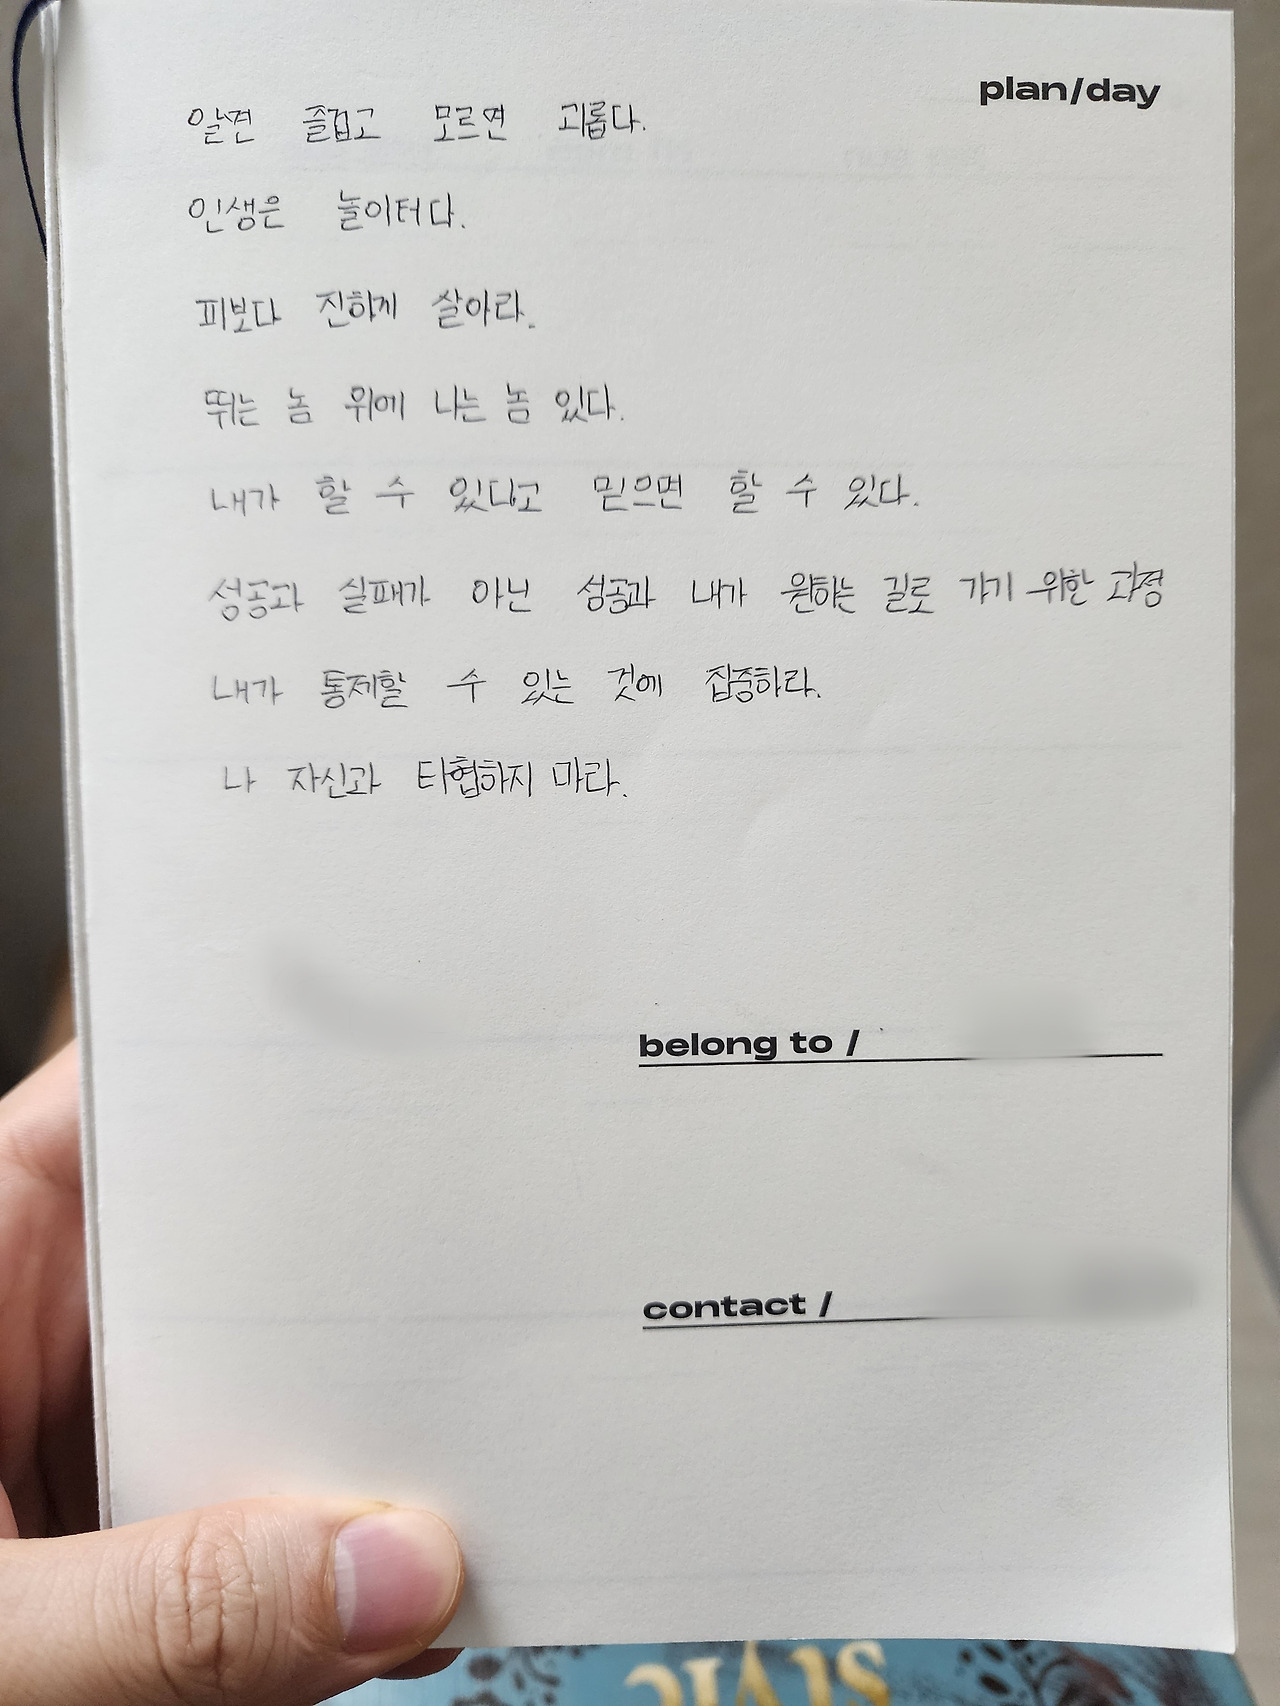 plan/day
알면 즐겁고 모르면 괴롭다.
인생은 놀이터다.
피보다 진하게 살아라.
뛰는 놈 위에 나는 놈 있다.
내가 할 수 있다고 믿으면 할 수 있다.
성공과 실패가 아닌 성공과 내가 원하는 길로 가기 위한 과정
내가 통제할 수 있는 것에 집중하라.
나 자신과 타협하지 마라.
belong to /
contact /